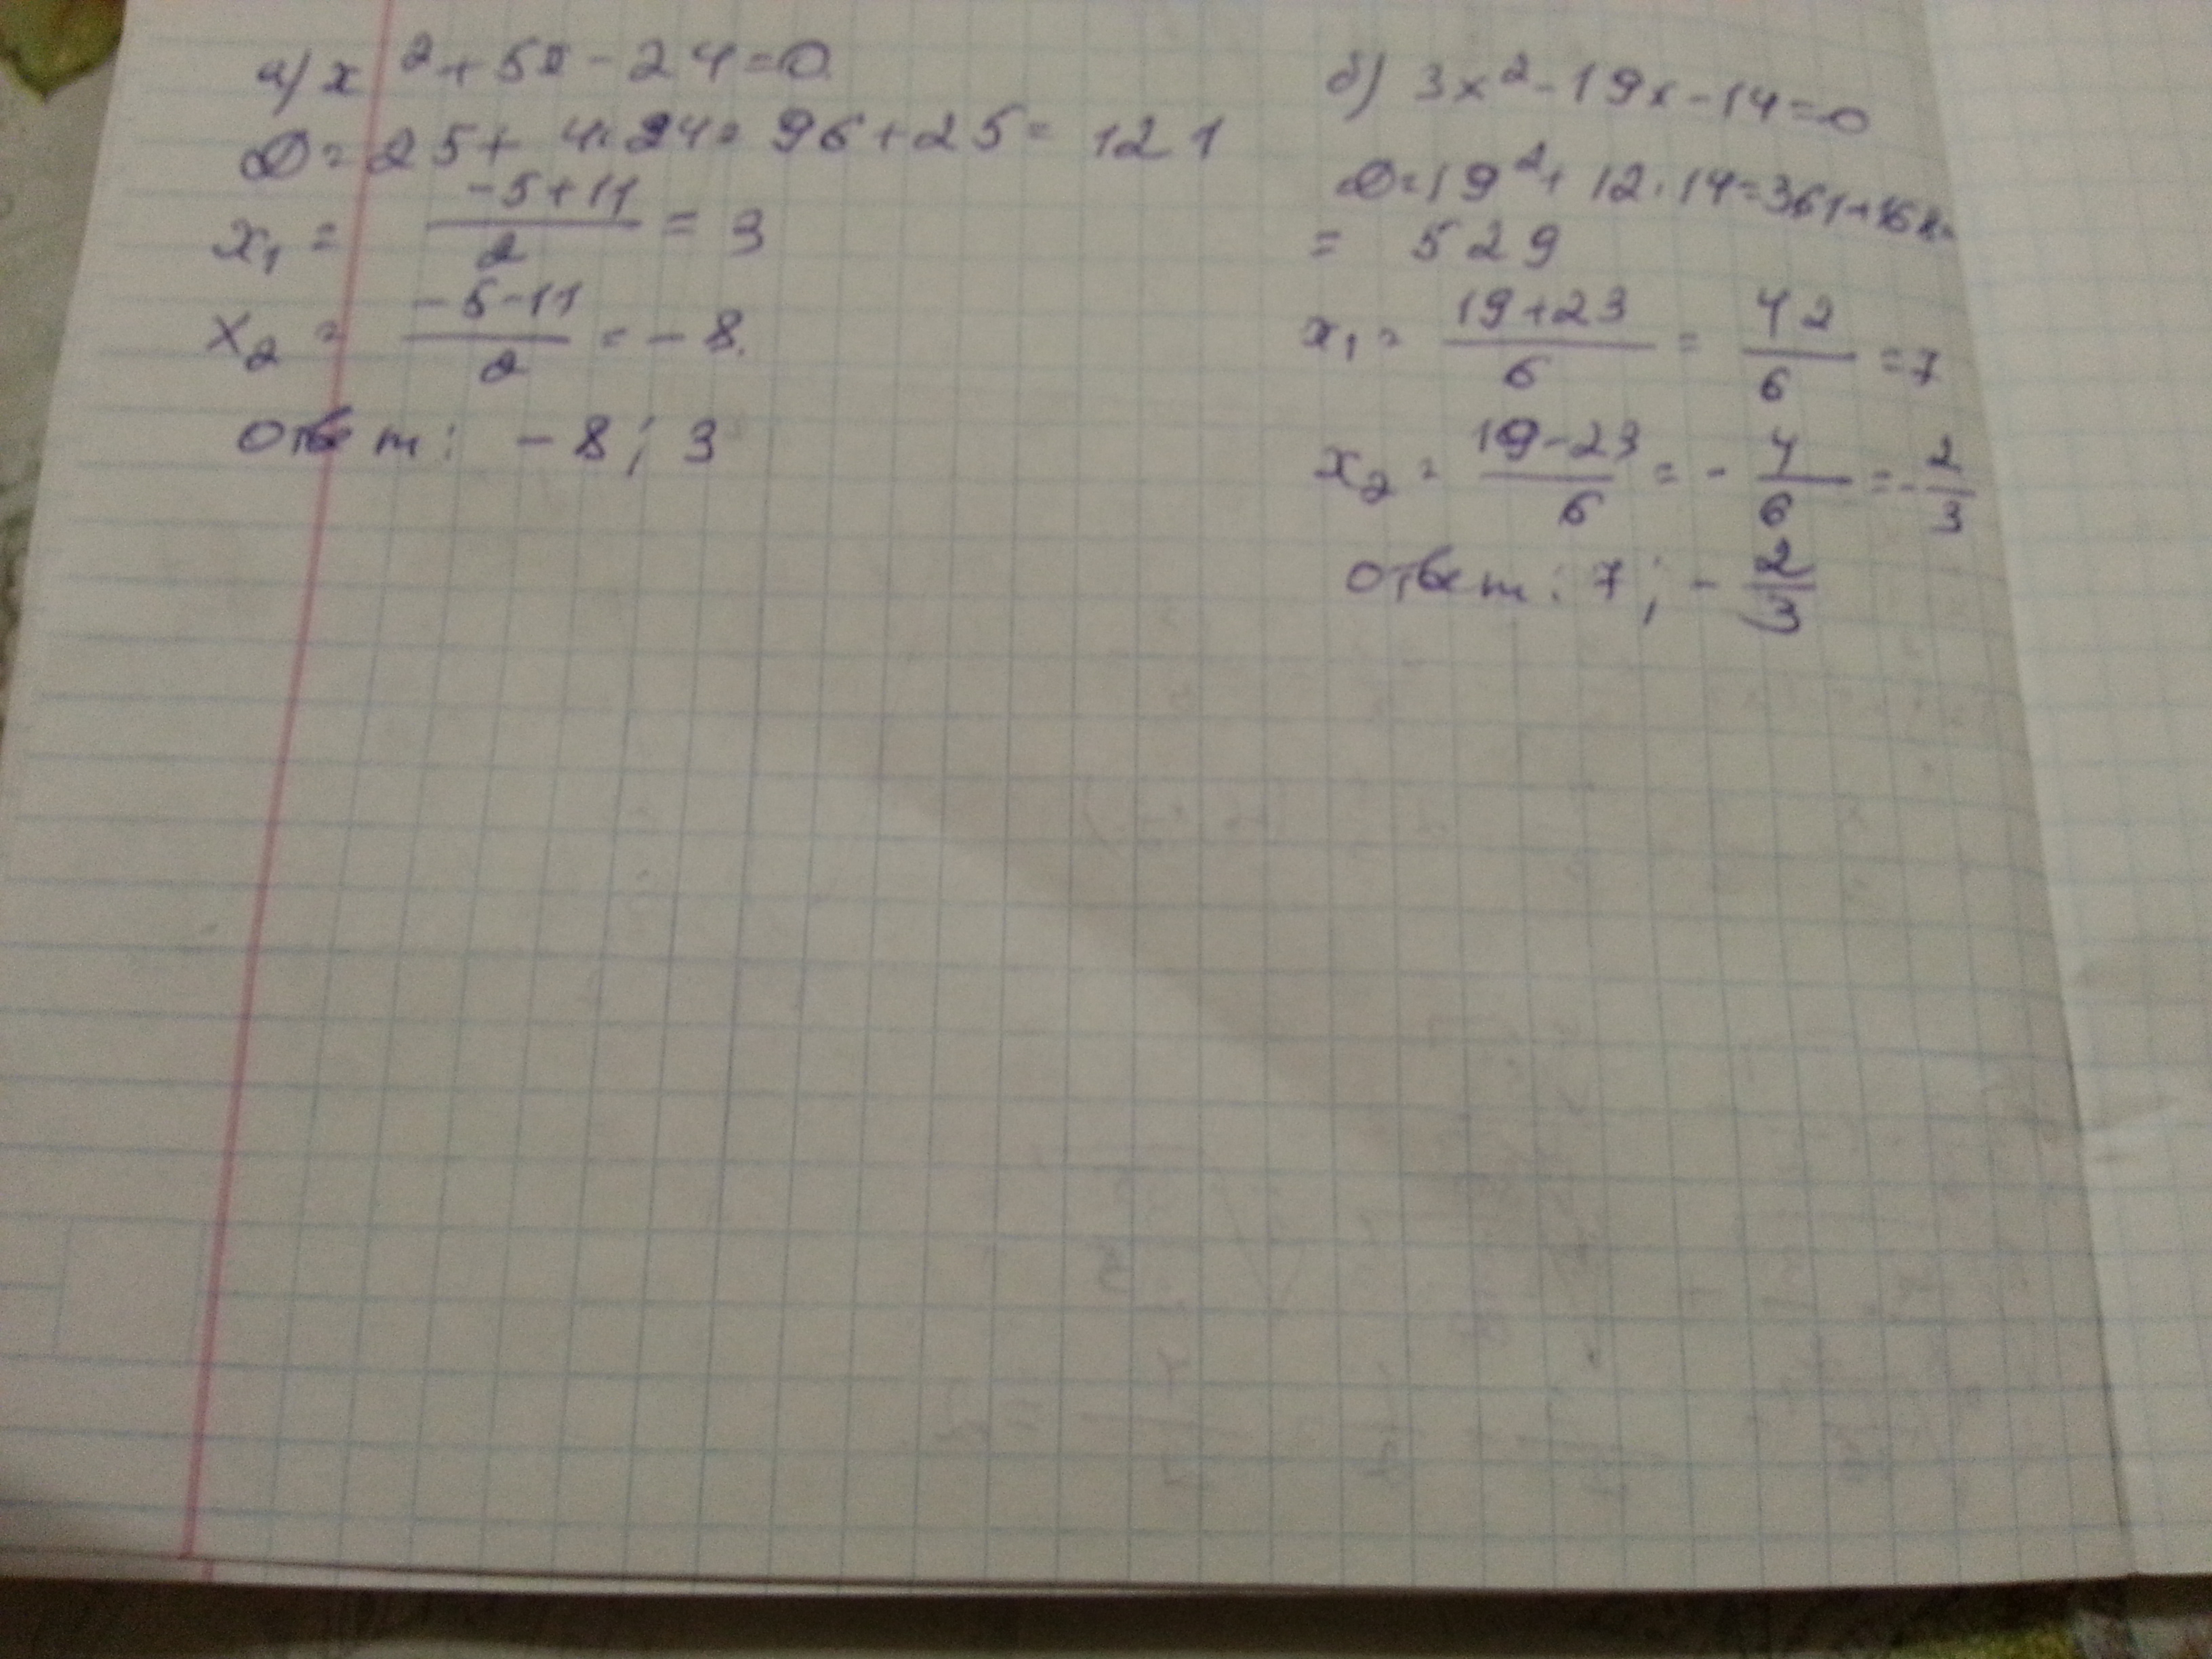 а) x² + 5x - 24 = 0
D = 25 + 4·24 = 96 + 25 = 121
x₁ = (-5+11)/2 = 3
x₂ = (-5-11)/2 = -8.
Ответ: -8; 3
б) 3x² - 19x - 14 = 0
D = 19² + 12·14 = 361 + 168 =
= 529
x₁ = (19+23)/6 = 42/6 = 7
x₂ = (19-23)/6 = -4/6 = -2/3
Ответ: 7; -2/3